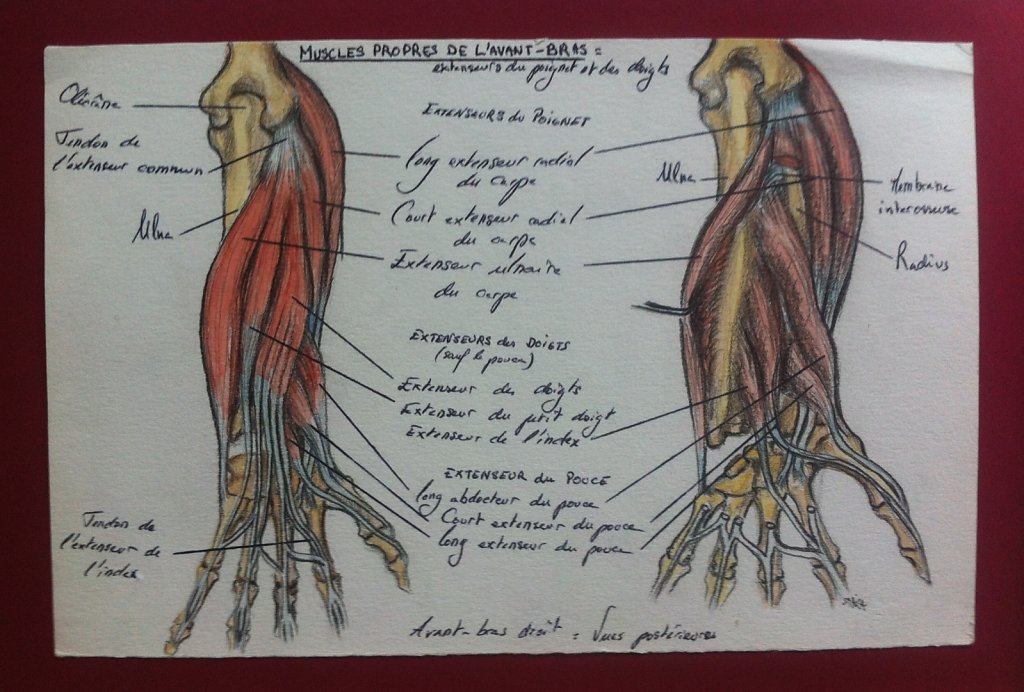 MUSCLES PROPRES DE L'AVANT-BRAS =
extenseurs du poignet et des doigts
Olécrâne
EXTENSEURS du POIGNET
Tendon de
l'extenseur commun
long extenseur radial
du carpe
Ulna
Membrane
interosseuse
Court extenseur radial
du carpe
Ulna
Extenseur ulnaire
du carpe
Radius
EXTENSEURS des DOIGTS
(sauf le pouce)
Extenseur des doigts
Extenseur du petit doigt
Extenseur de l'index
EXTENSEUR du POUCE
long abducteur du pouce
Court extenseur du pouce
long extenseur du pouce
Tendon de
l'extenseur de
l'index
Avant-bras droit = Vues postérieures